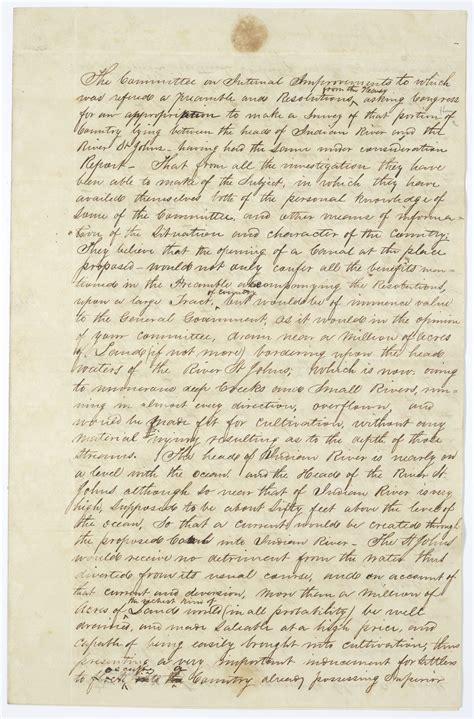 The Committee on Internal Improvements to which
was refered a Preamble and Resolutions, from the House asking Congress
for an appropriation to make a Survey of that portion of
Country lying between the head of Indian River and the
River St Johns - having had the same under consideration
Report - That from all the investigation they have
been able to make of the Subject, in which they have
availed themselves both of the personal knowledge of
some of the Committee, and other means of informa-
tion of the Situation and character of the Country;
They believe that the opening of a Canal at the place
proposed - would not only confer all the benefits men-
tioned in the Preamble accompanying the Resolutions,
upon a large Tract of country, but would be of immence value
to the General Government, as it would in the opinion
of your committee, drain near a Million of acres
of Lands (if not more) bordering upon the head
waters of the River St Johns, which is now owing
to numerous deep Creeks and Small Rivers, run-
ning in almost every direction, overflown, and
would be made fit for cultivation, without any
material injury resulting as to the depth of those
Streams. The head of Indian River is nearly on
a level with the ocean, and the Head of the River St
Johns although so near that of Indian River is very
high, supposed to be about fifty feet above the level of
the ocean, So that a current would be created through
the proposed Canal into Indian River - The St Johns
would receive no detriment from the water thus
diverted from its usual course, and on account of
that current and diversion, more than a Million of
Acres of the richest kind of Lands would (in all probability) be well
drained, and made saleable at a high price, and
capable of being easily brought into cultivation, thus
presenting a very important inducement for Settlers
to Country already possessing Superior